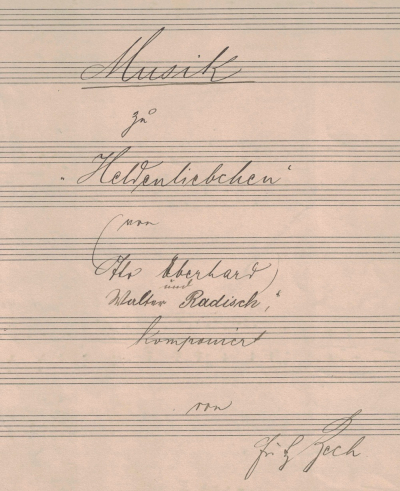 Musik
zu
„Heldenliebchen“
(von
Otto Eberhard
und
Walter Radisch,“)
komponiert
von
Fritz Zech